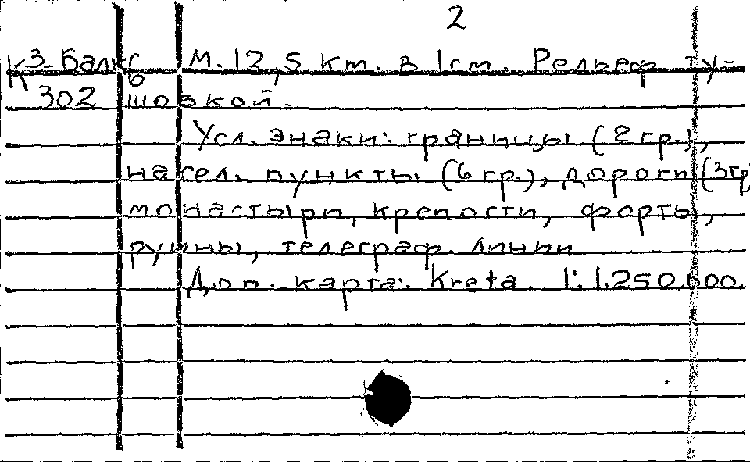 2
К 3-Балк. М. 12,5 km. в 1 cm. Рельеф ту-
6
302 шовкой.
Усл. знаки: границы (2 гр.),
насел. пункты (6 гр.), дороги (3 гр
монастыри, крепости, форты,
руины, телеграф. линии
Доп. карта: Kreta 1:1.250.000.